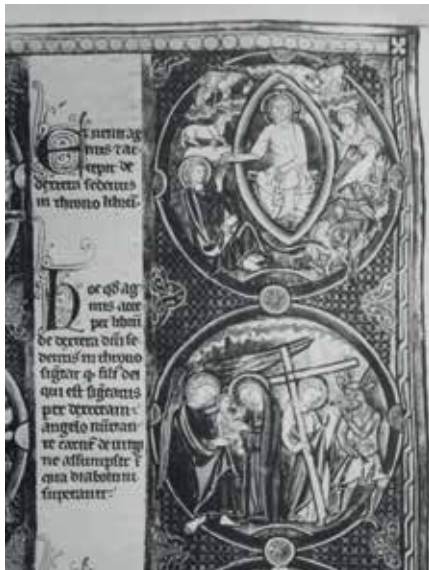 Et venit ag
nus ⁊ ac
cepit de
dextera sedentis
in throno librū.
Hoc qđ ag
nus acce
pit librū
de dextera dei se
dentis in throno
sig̅cat q̵ fili' dei
qui est sig̅catus
per dexteram
angelo nūcian
te carnē de virgi
ne assumpsit
diabolum
superavit.